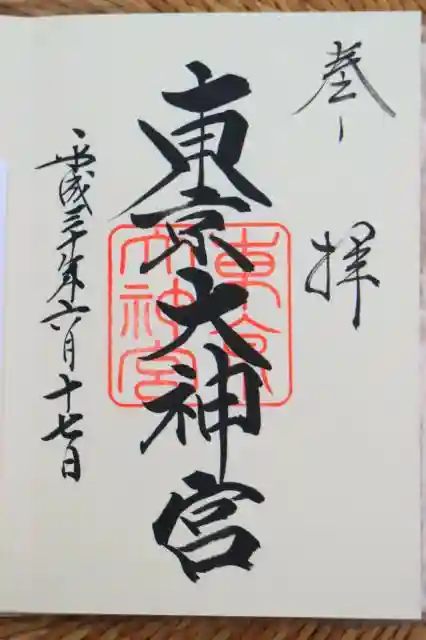 奉拝
東京大神宮
平成三十年六月十七日
東京
大神宮